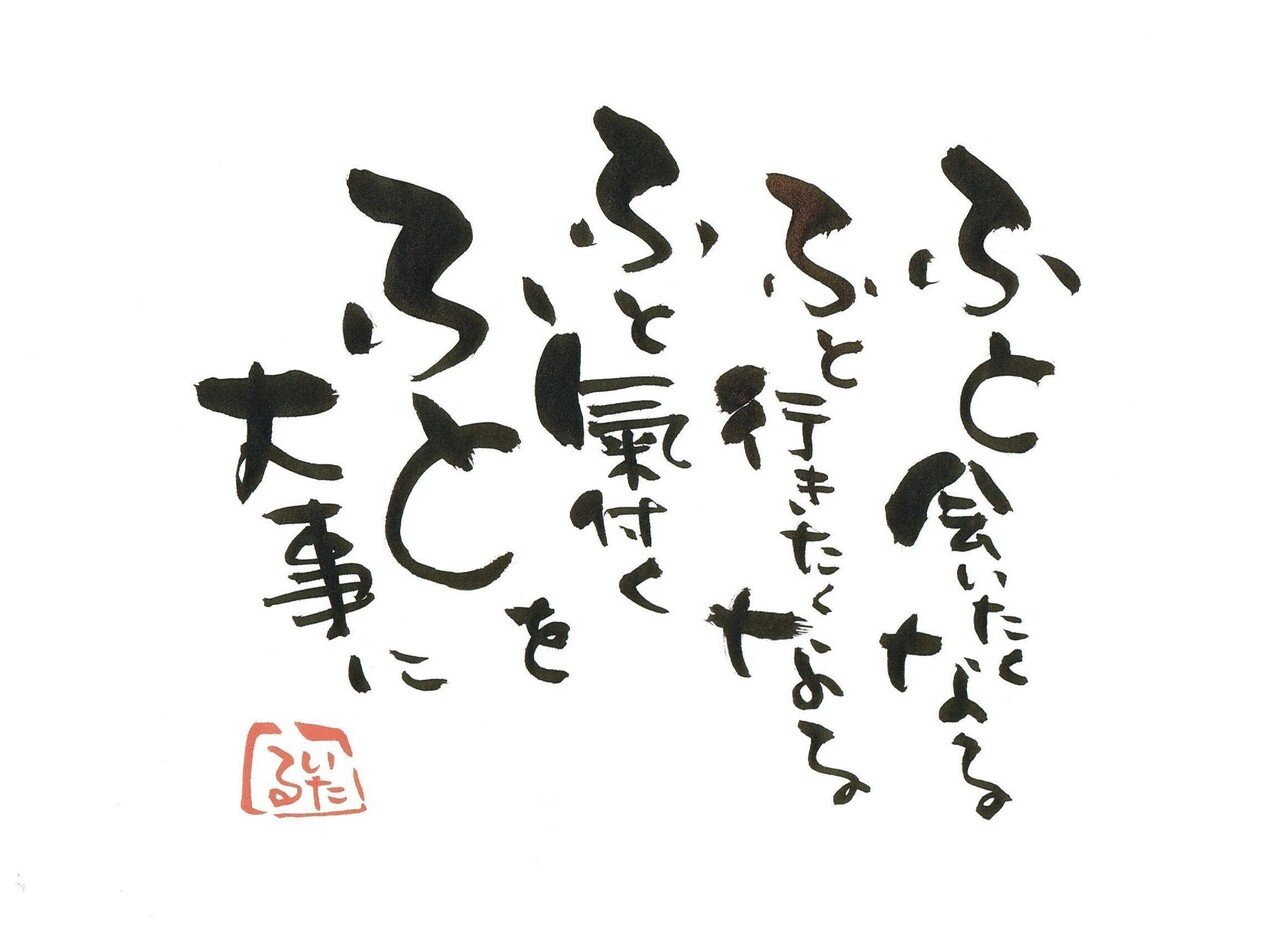 ふと会いたくなる
ふと行きたくなる
ふと氣付く
ふとを
大事に
いたる